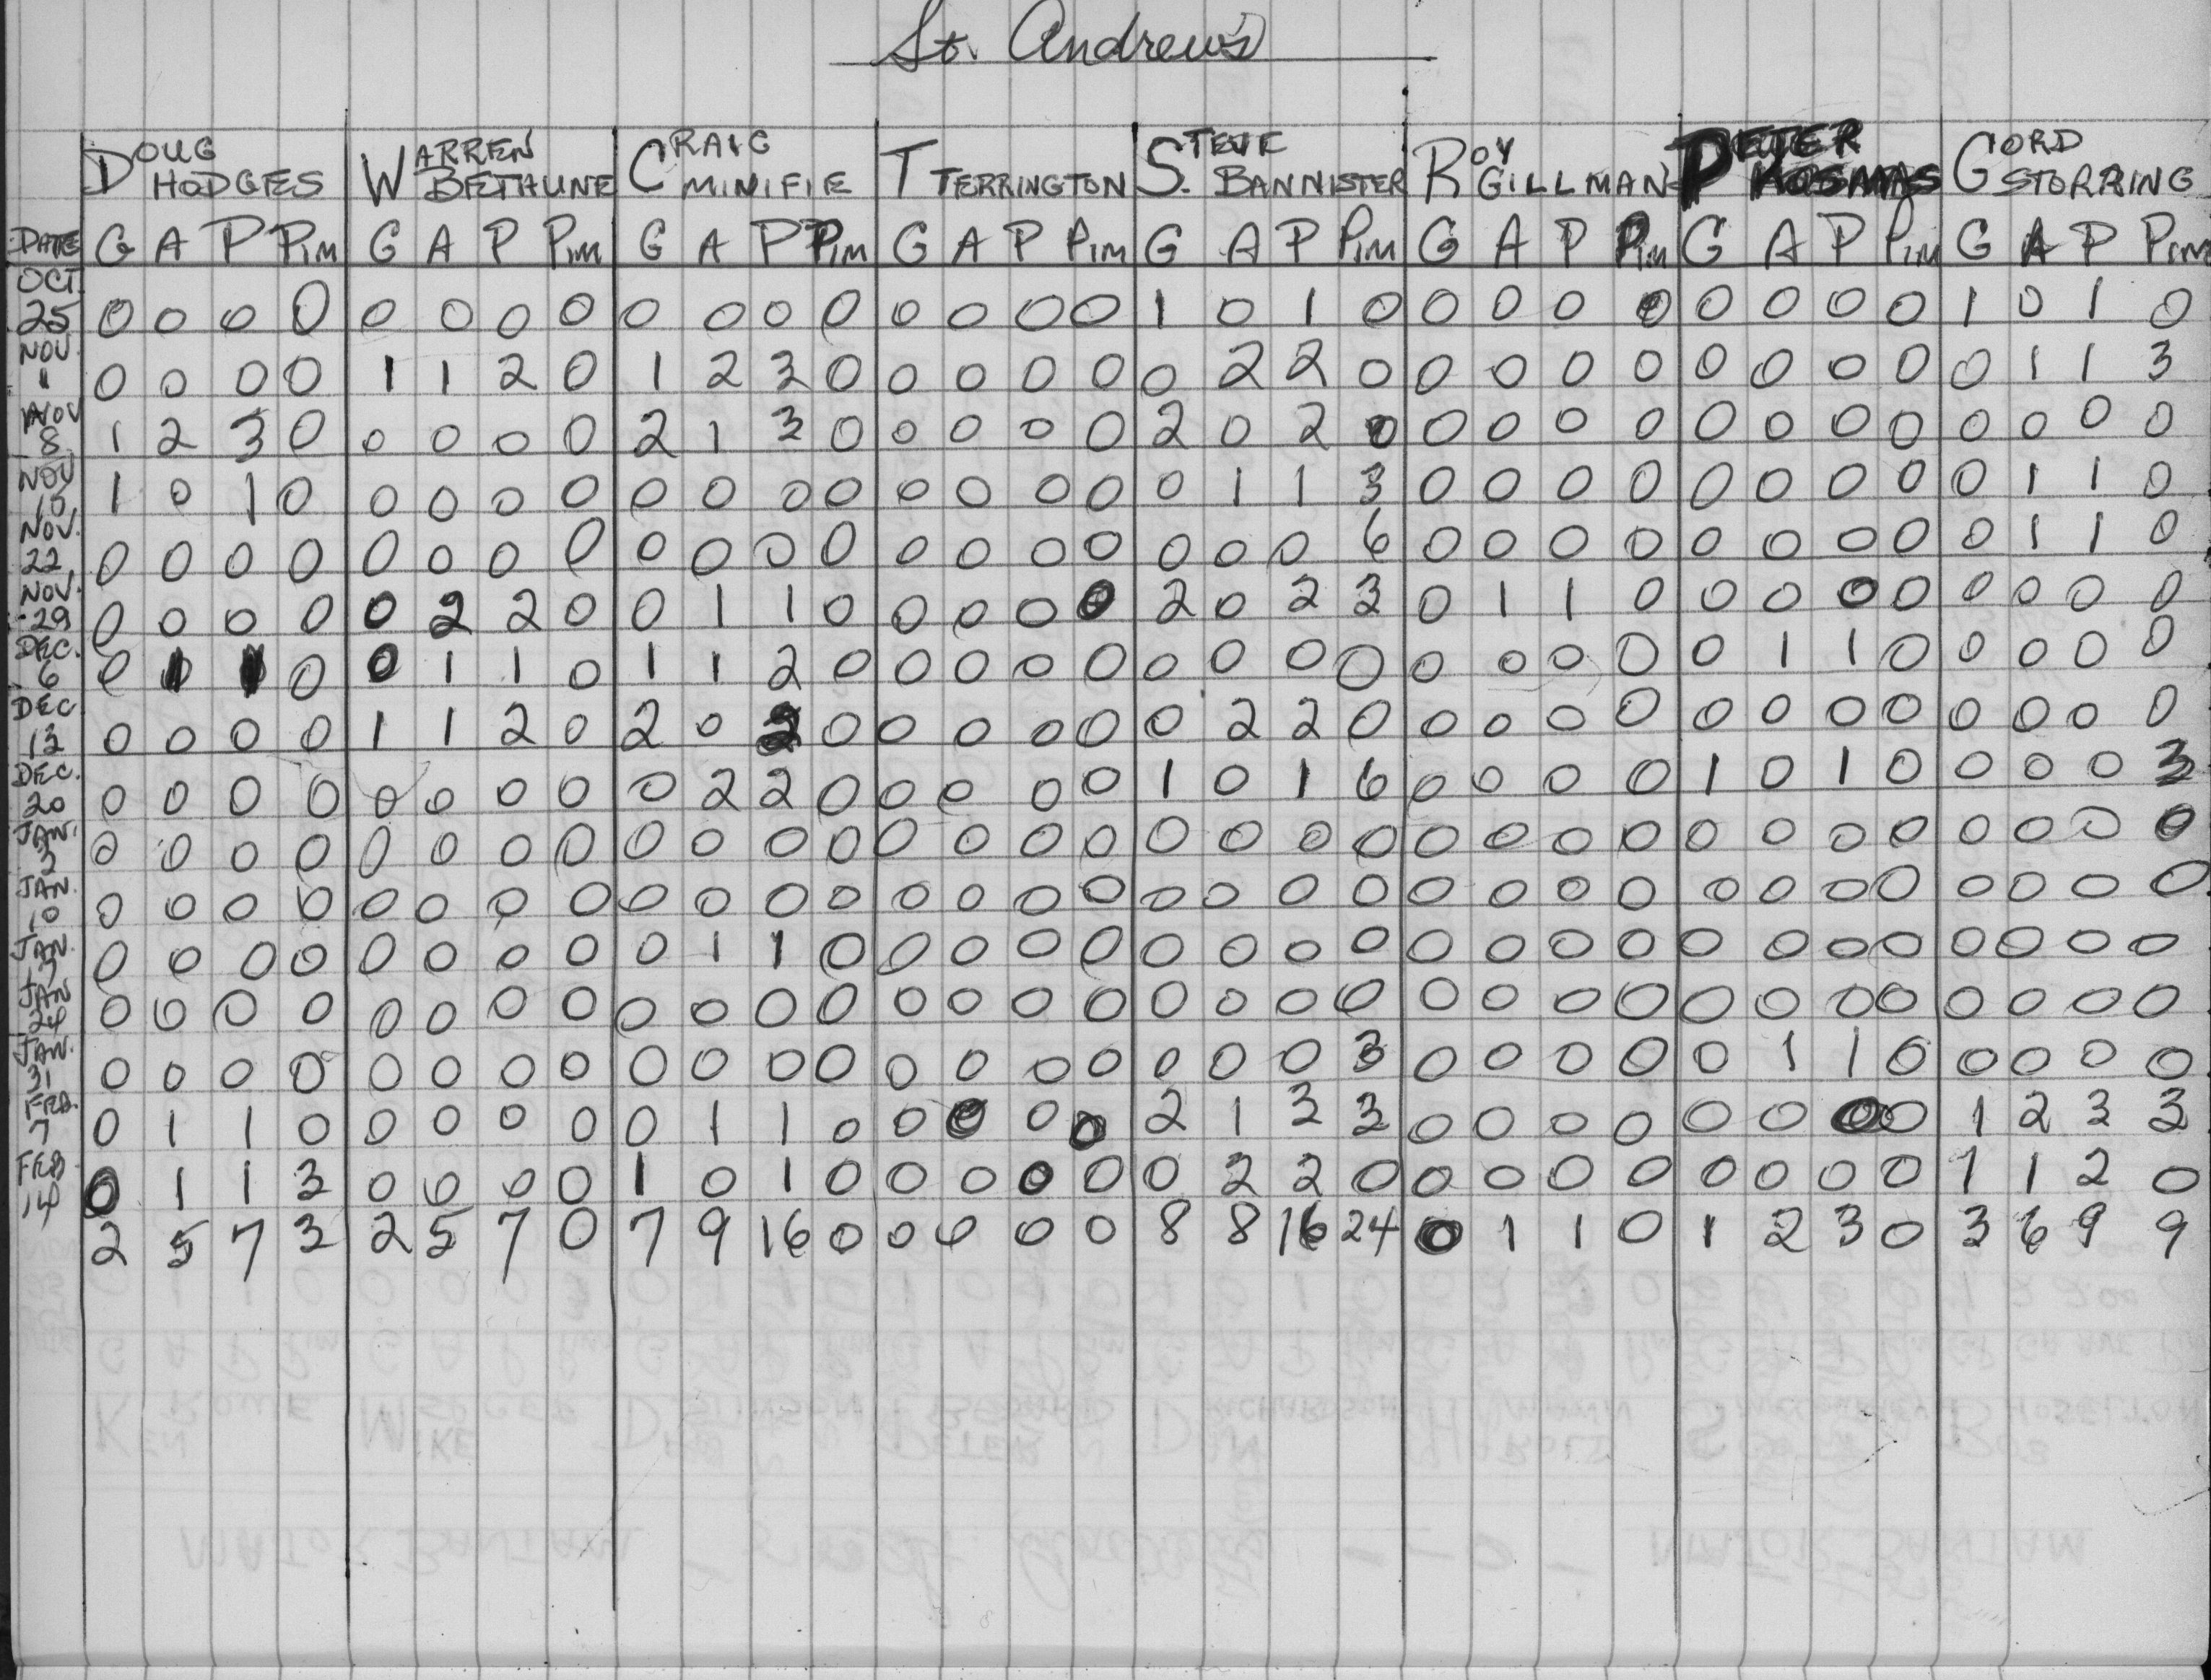 St. Andrew's
DOUG HODGES WARREN BETHUNE CRAIG MINIFIE T TERRINGTON STEVE BANNISTER ROY GILLMAN PETER KOSMAS GORD STORRING
DATE G A P PIM G A P PIM G A P PIM G A P PIM G A P PIM G A P PIM G A P PIM G A P PIM
OCT. 25 0 0 0 0 0 0 0 0 0 0 0 0 0 0 0 0 1 0 1 0 0 0 0 0 0 0 0 0 1 0 1 0
NOV. 0 0 0 0 1 1 2 0 1 2 3 0 0 0 0 0 0 2 2 0 0 0 0 0 0 0 0 0 0 1 1 3
NOV 8 1 2 3 0 0 0 0 0 2 1 3 0 0 0 0 0 2 0 2 0 0 0 0 0 0 0 0 0 0 0 0 0
NOV 15 1 0 1 0 0 0 0 0 0 0 0 0 0 0 0 0 0 1 1 3 0 0 0 0 0 0 0 0 0 1 1 0
NOV. 22 0 0 0 0 0 0 0 0 0 0 0 0 0 0 0 0 0 0 0 6 0 0 0 0 0 0 0 0 0 1 1 0
NOV. 29 0 0 0 0 0 2 2 0 0 1 1 0 0 0 0 0 2 0 2 3 0 1 1 0 0 0 0 0 0 0 0 0
DEC. 6 0 1 1 0 0 1 1 0 1 1 2 0 0 0 0 0 0 0 0 0 0 0 0 0 0 1 1 0 0 0 0 0
DEC 13 0 0 0 0 1 1 2 0 2 0 2 0 0 0 0 0 0 2 2 0 0 0 0 0 0 0 0 0 0 0 0 0
DEC. 20 0 0 0 0 0 0 0 0 0 2 2 0 0 0 0 0 1 0 1 6 0 0 0 0 1 0 1 0 0 0 0 3
JAN. 3 0 0 0 0 0 0 0 0 0 0 0 0 0 0 0 0 0 0 0 0 0 0 0 0 0 0 0 0 0 0 0 0
JAN. 10 0 0 0 0 0 0 0 0 0 0 0 0 0 0 0 0 0 0 0 0 0 0 0 0 0 0 0 0 0 0 0 0
JAN. 17 0 0 0 0 0 0 0 0 0 1 1 0 0 0 0 0 0 0 0 0 0 0 0 0 0 0 0 0 0 0 0 0
JAN 24 0 0 0 0 0 0 0 0 0 0 0 0 0 0 0 0 0 0 0 0 0 0 0 0 0 0 0 0 0 0 0 0
JAN. 31 0 0 0 0 0 0 0 0 0 0 0 0 0 0 0 0 0 0 0 3 0 0 0 0 0 1 1 0 0 0 0 0
FEB. 7 0 1 1 0 0 0 0 0 0 1 1 0 0 0 0 0 2 1 3 3 0 0 0 0 0 0 0 0 1 2 3 3
FEB 14 0 1 1 3 0 0 0 0 1 0 1 0 0 0 0 0 0 2 2 0 0 0 0 0 0 0 0 0 1 1 2 0
2 5 7 3 2 5 7 0 7 9 16 0 0 0 0 0 8 8 16 24 0 1 1 0 1 2 3 0 3 6 9 9